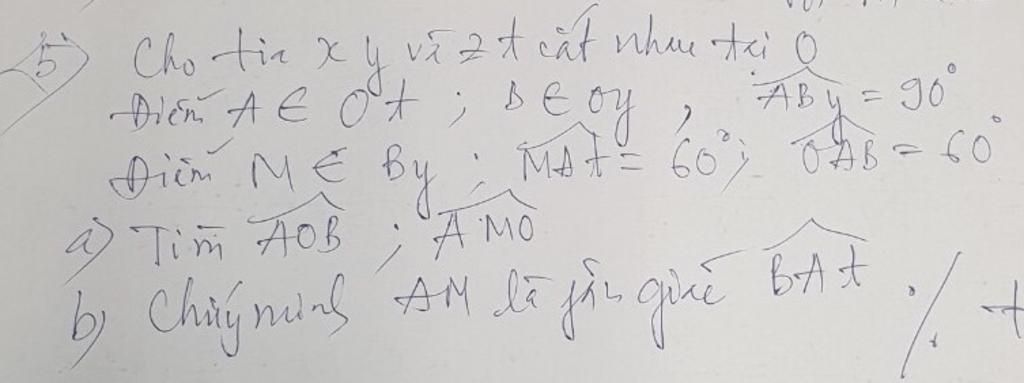 5) Cho tia xy và zt cắt nhau tại O
Điểm A ∈ Ot ; B ∈ Oy , ABy = 90°
Điểm M ∈ By ; MAt = 60° ; OAB = 60°
a) Tìm AOB ; AMO
b) Chứng minh AM là phân giác BAt ./. t